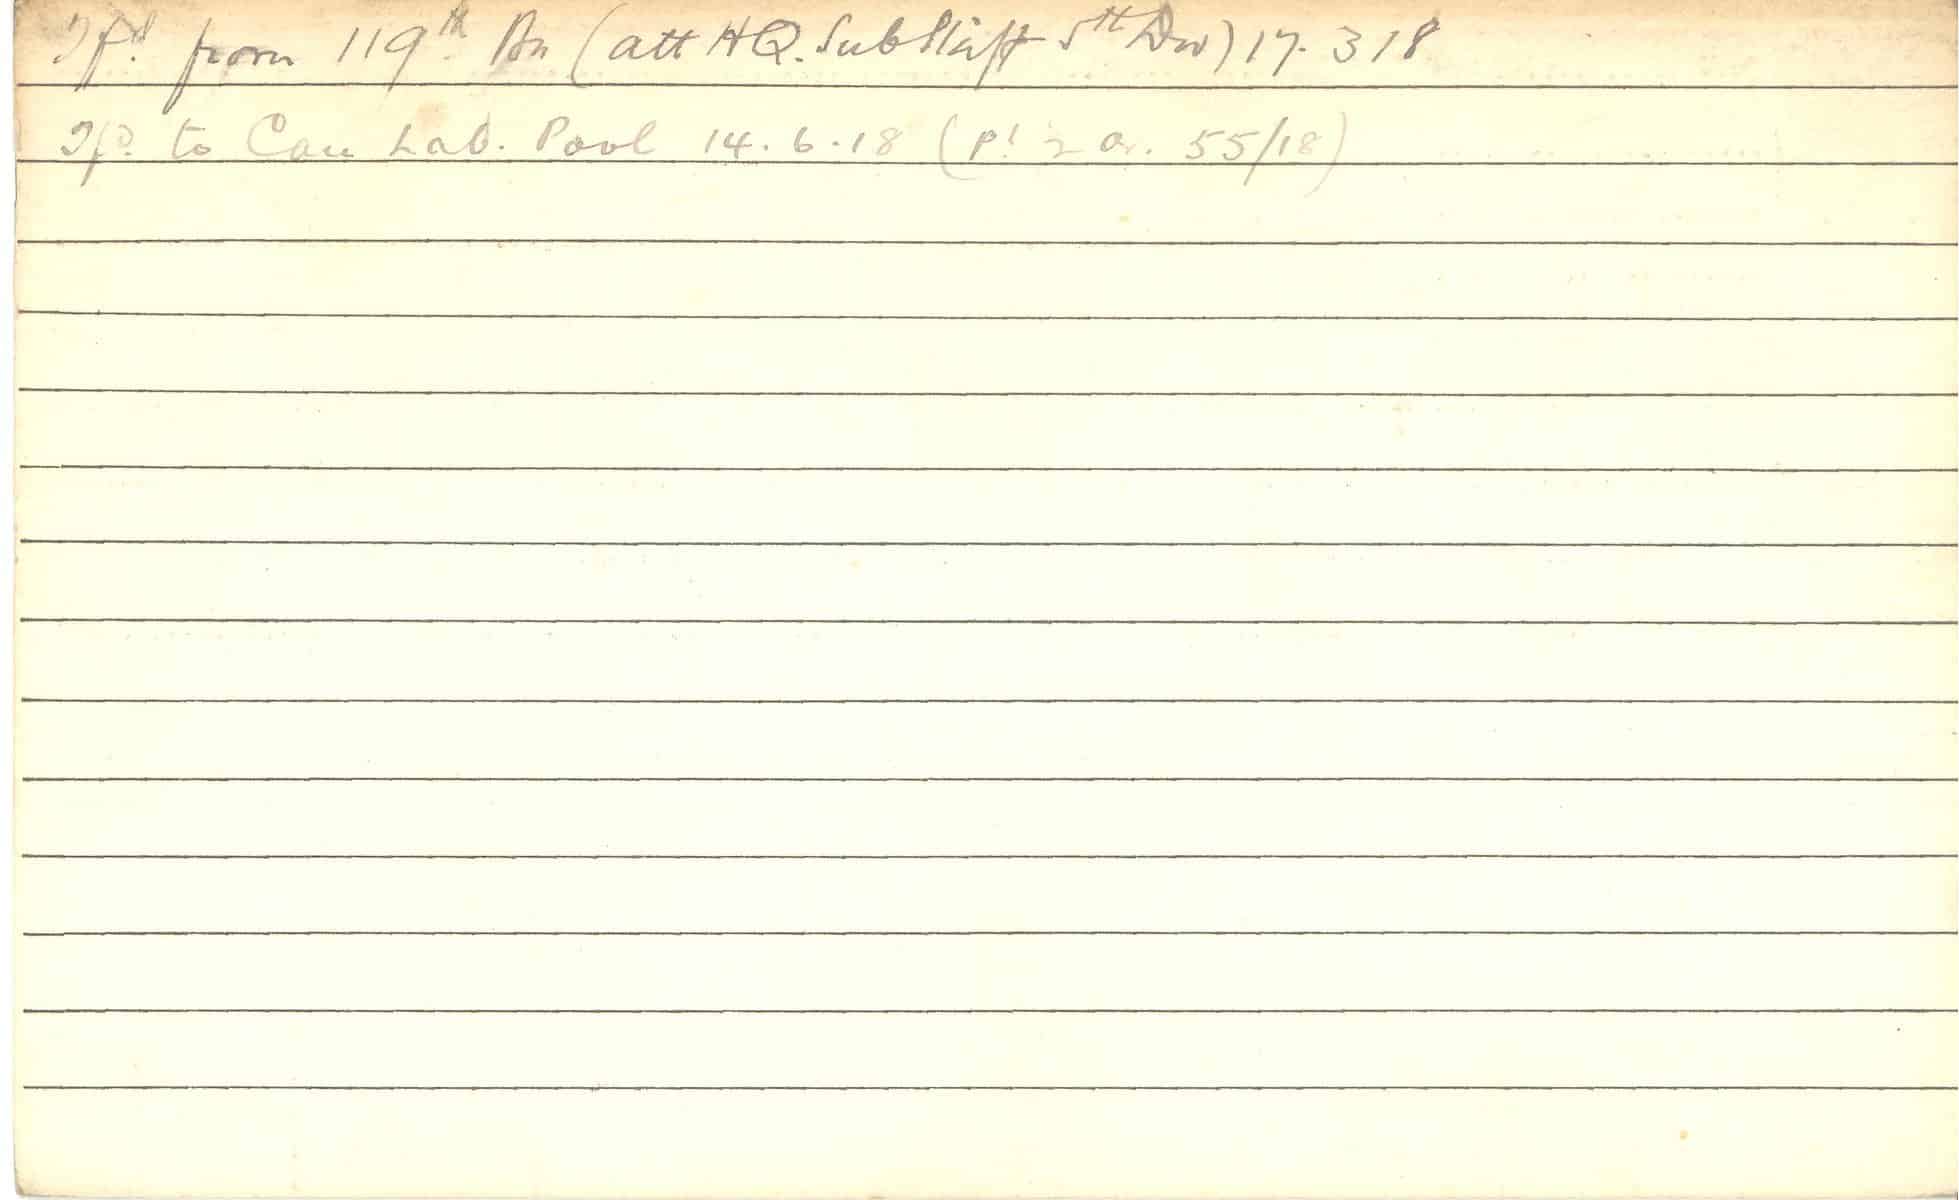 Tfd. from 119th Bn (att HQ. Sub Staff 5th Div) 17. 3 18
Tfd. to Can Lab. Pool 14.6.18 (Pt 2 Or. 55/18)